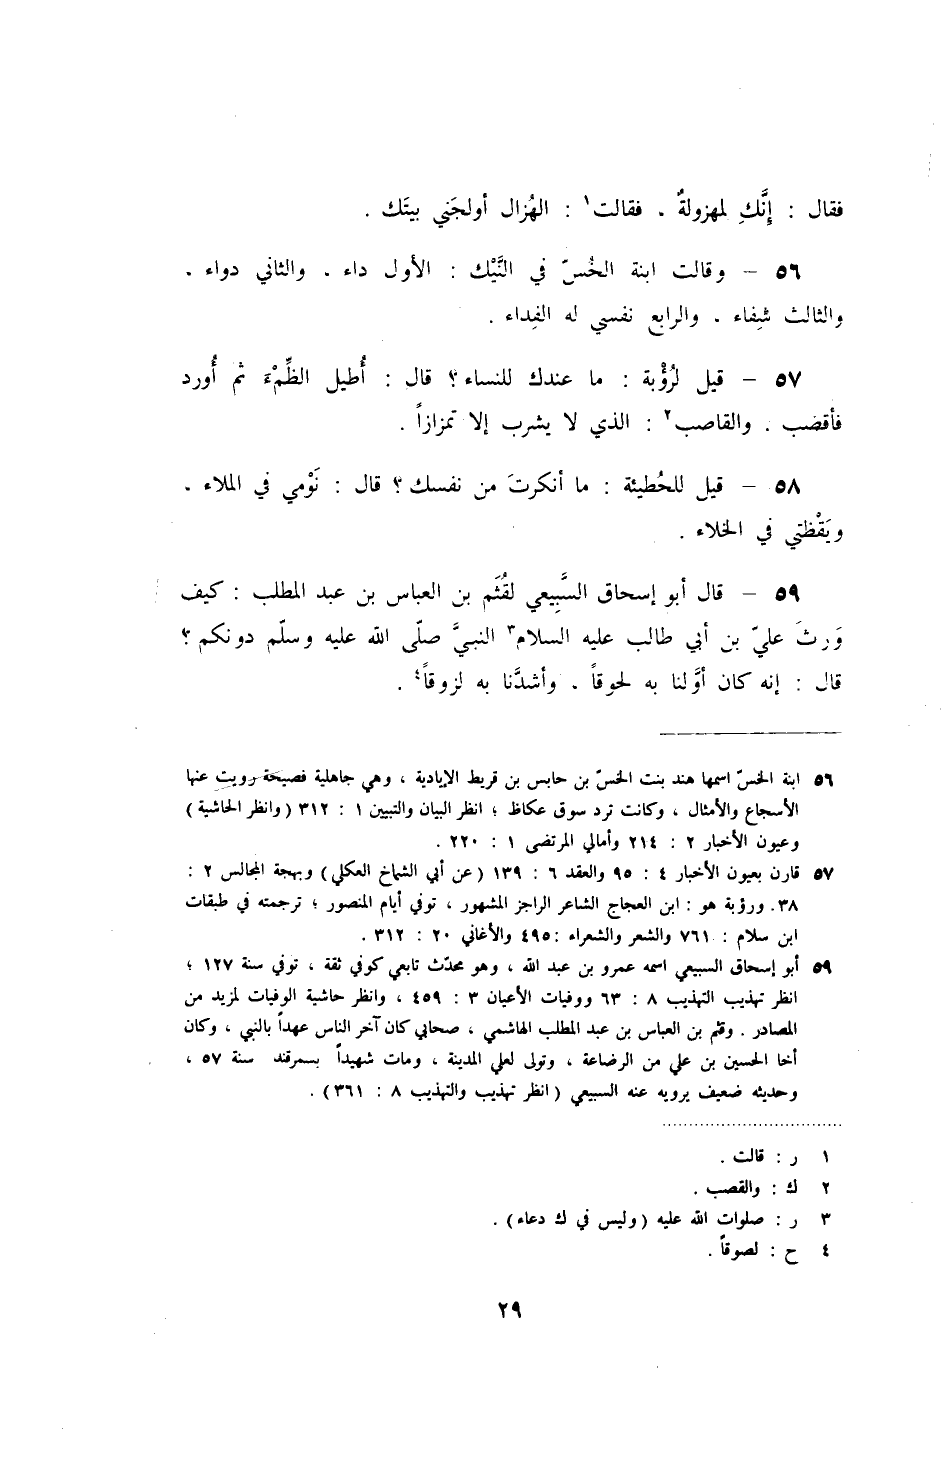 فقال : إنَّكِ لمهزولةٌ . فقالت١ : الهُزال أولجَني بيتَك .
٥٦ – وقالت ابنة الخُسّ في النَّيْك : الأول داء . والثاني دواء .
والثالث شِفاء . والرابع نفسي له الفِداء .
٥٧ – قيل لرُؤْبة : ما عندك للنساء ؟ قال : أُطيل الظِّمْءَ ثم أُورد
فأقضب . والقاصب٢ : الذي لا يشرب إلا تمززاً .
٥٨ – قيل للحُطيئة : ما أنكرتَ من نفسك ؟ قال : نَوْمي في الملاء .
ويَقْظتي في الخلاء .
٥٩ – قال أبو إسحاق السَّبِيعي لقُثَم بن العباس بن عبد المطلب : كيف
وَرِثَ عليّ بن أبي طالب عليه السلام٣ النبيَّ صلّى الله عليه وسلّم دونكم ؟
قال : إنه كان أوَّلنا به لحوقاً . وأشدَّنا به لزوقاً٤ .
٥٦ ابنة الخسّ اسمها هند بنت الخسّ بن حابس بن قريط الإيادية ، وهي جاهلية فصيحة رويت عنها
الأسجاع والأمثال ، وكانت ترد سوق عكاظ ؛ انظر البيان والتبيين ١ : ٣١٢ (وانظر الحاشية)
وعيون الأخبار ٢ : ٢١٤ وأمالي المرتضى ١ : ٢٢٠ .
٥٧ قارن بعيون الأخبار ٤ : ٩٥ والعقد ٦ : ١٣٩ (عن أبي الشماخ العكلي) وبهجة المجالس ٢ :
٣٨. ورؤبة هو : ابن العجاج الشاعر الراجز المشهور ، توفي أيام المنصور ؛ ترجمته في طبقات
ابن سلام : ٧٦١ والشعر والشعراء :٤٩٥ والأغاني ٢٠ : ٣١٢ .
٥٩ أبو إسحاق السبيعي اسمه عمرو بن عبد الله ، وهو محدّث تابعي كوفي ثقة ، توفي سنة ١٢٧ ؛
انظر تهذيب التهذيب ٨ : ٦٣ ووفيات الأعيان ٣ : ٤٥٩ ، وانظر حاشية الوفيات لمزيد من
المصادر . وقثم بن العباس بن عبد المطلب الهاشمي ، صحابي كان آخر الناس عهداً بالنبي ، وكان
أخا الحسين بن علي من الرضاعة ، وتولى لعلي المدينة ، ومات شهيداً بسمرقند سنة ٥٧ ،
وحديثه ضعيف يرويه عنه السبيعي (انظر تهذيب والتهذيب ٨ : ٣٦١) .
١ ر : قالت .
٢ ك : والقصب .
٣ ر : صلوات الله عليه (وليس في ك دعاء) .
٤ ح : لصوقاً .
٢٩